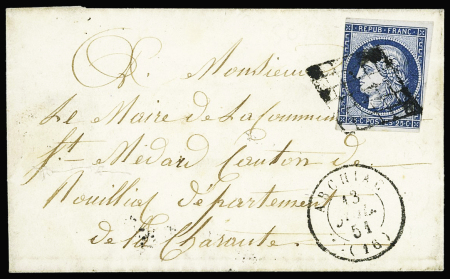 REPUB. FRANC.
25 C POSTES 25 C
A. Monsieur
Le Maire de La Commune
St Médard Canton de
Rouillac département
de la Charante.
ARCHIAC
13
51
(16)